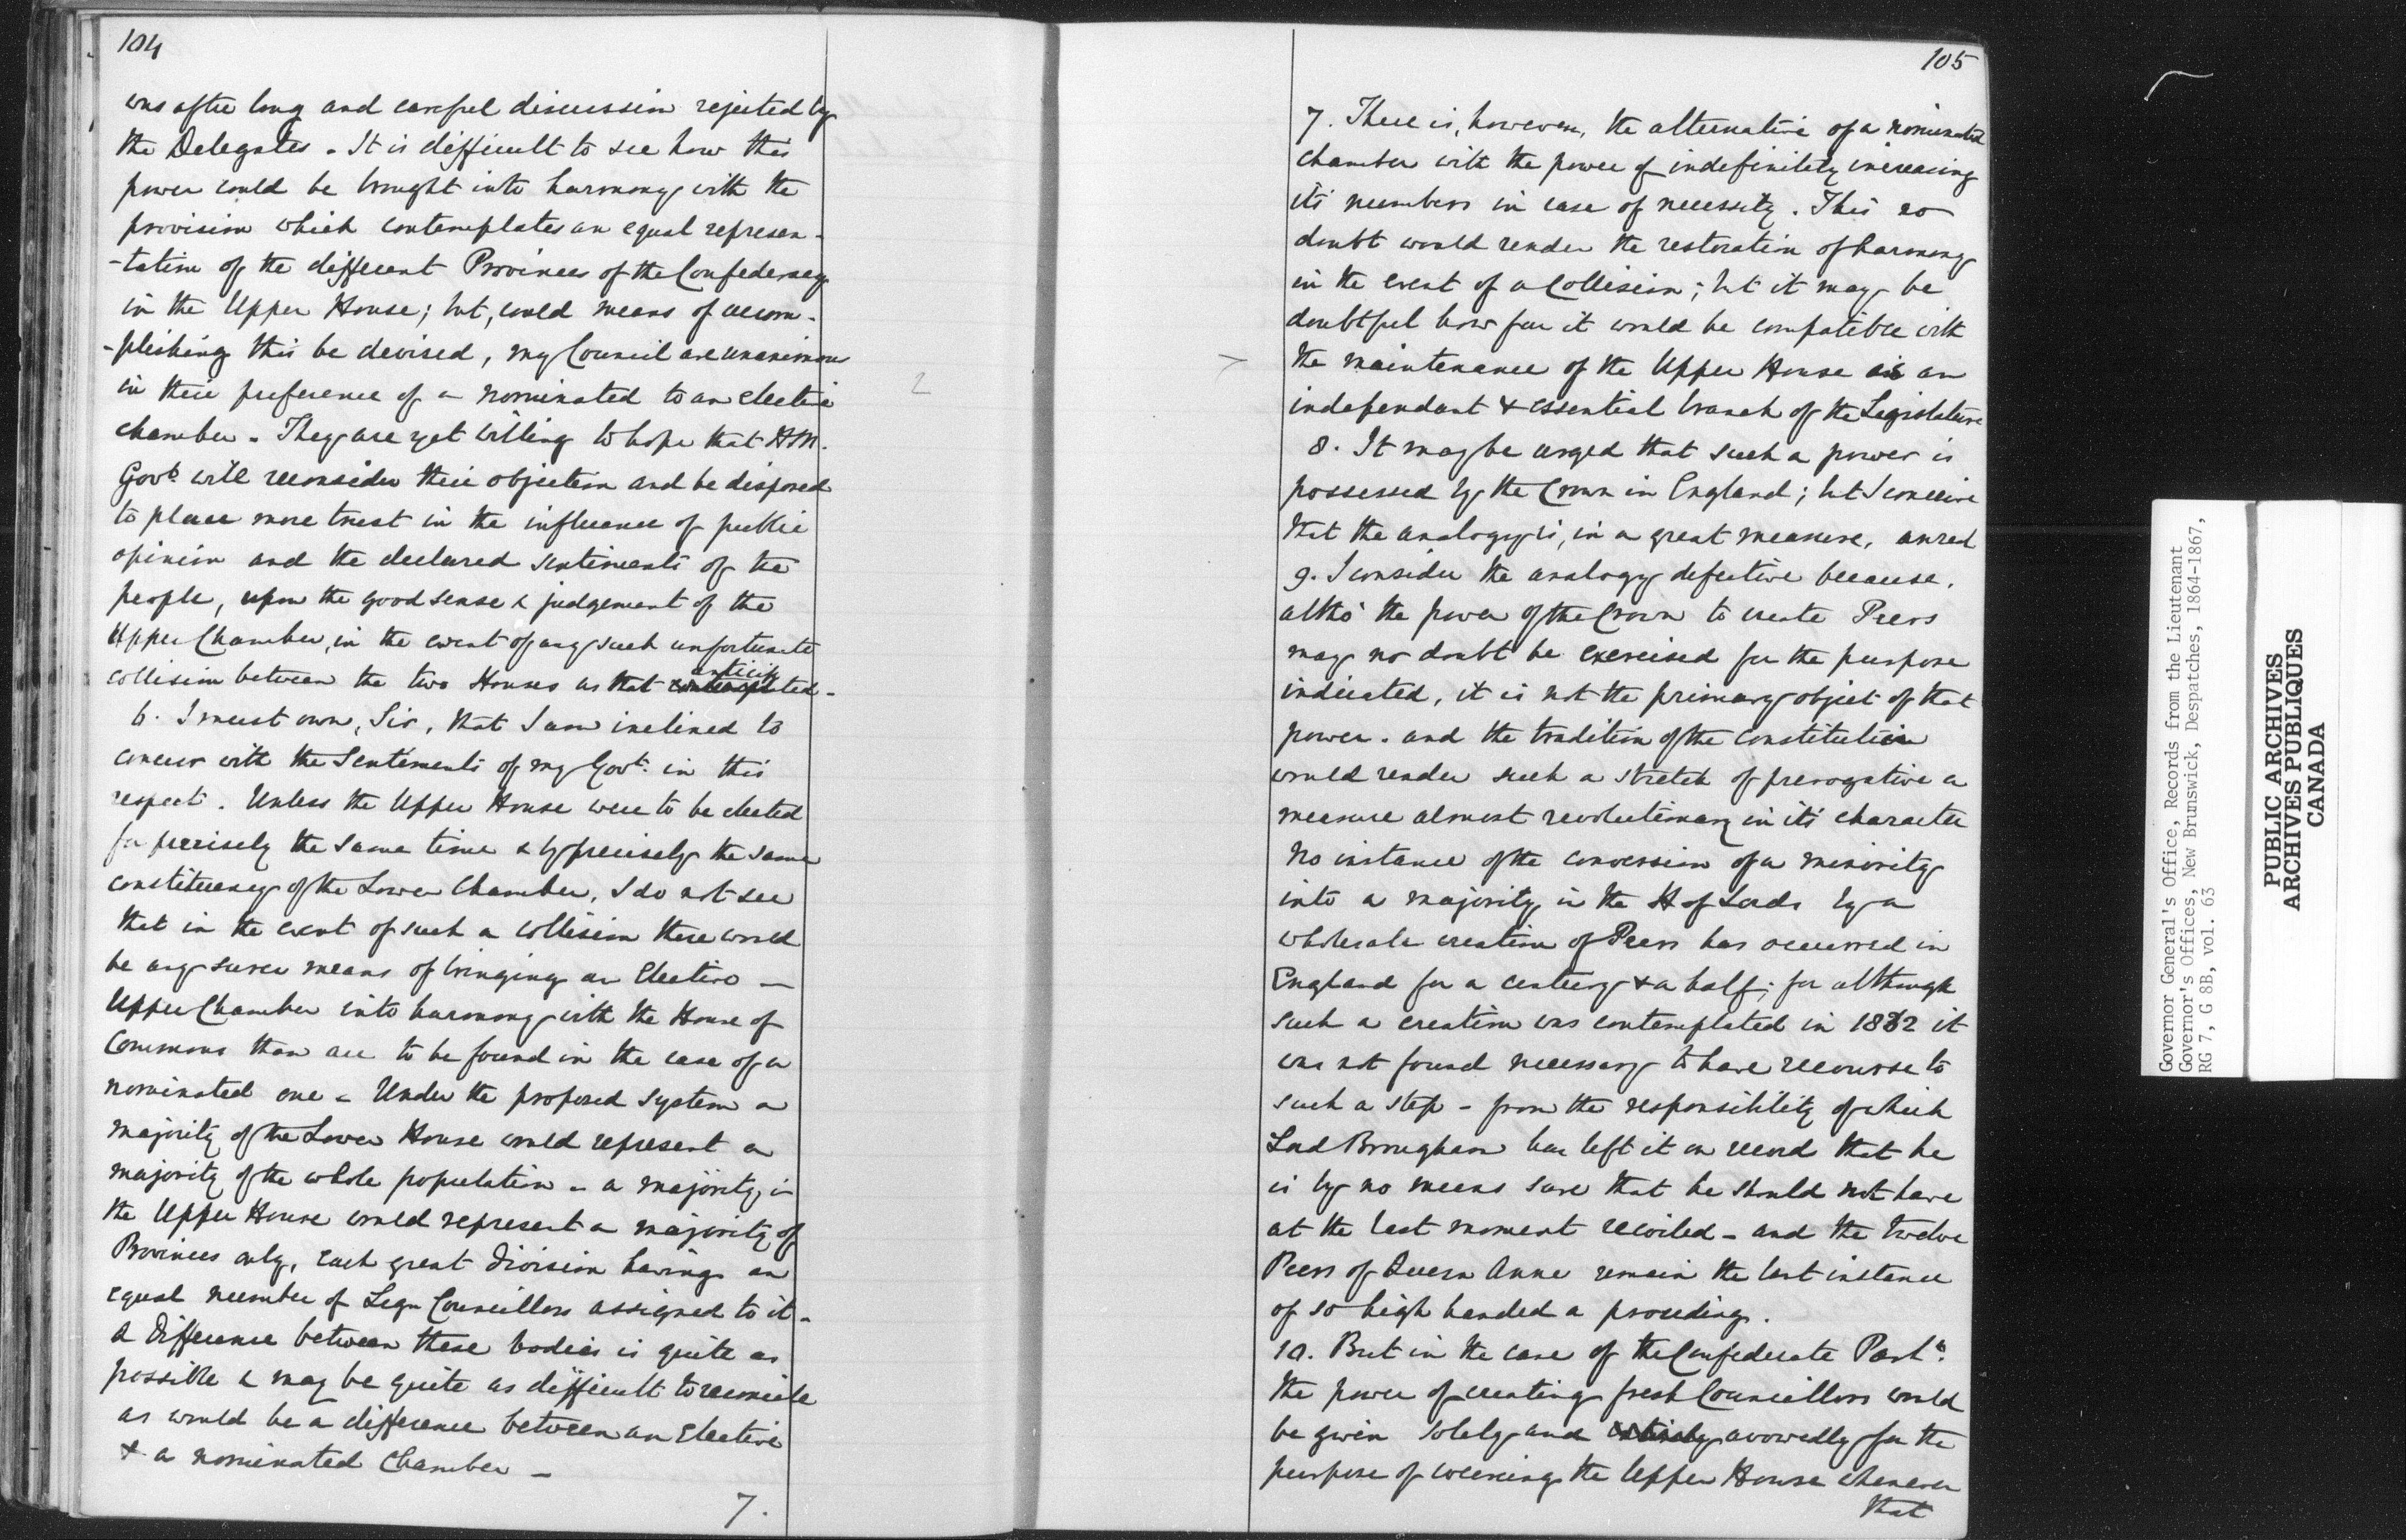 104
was after long and careful discussion rejected by
the Delegates - It is difficult to see how this
power could be brought into harmony with the
provision which contemplates an equal represen-
-tation of the different Provinces of the Confederacy
in the Upper House; but, could means of accom-
-plishing this be devised, my Council are unanimous
in their preference of a nominated to an elective
chamber - They are yet willing to hope that H.M.
Govt. will reconsider their objection and be disposed
to place more trust in the influence of public
opinion and the declared sentiments of the
people, upon the good sense & judgement of the
Upper Chamber, in the event of any such unfortunate
anticip
collision between the two Houses as that contemplated -
6. I must own, Sir, that I am inclined to
concur with the Sentiments of my Govt. in this
respect. Unless the Upper House were to be elected
for precisely the same time & by precisely the same
constituency of the Lower Chamber, I do not see
that in the event of such a collision there would
be any surer means of bringing an Elective -
Upper Chamber into harmony with the House of
Commons than are to be found in the case of a
nominated one - Under the proposed system a
majority of the Lower House would represent a
majority of the whole population - a majority in
the Upper House would represent a majority of
Provinces only, each great division having an
equal number of Legve Councillors assigned to it -
A difference between these bodies is quite as
possible & may be quite as difficult to reconcile
as would be a difference between an Elective
& a nominated Chamber -
7.
2
105
7. There is, however, the alternative of a nominated
chamber with the power of indefinitely increasing
its numbers in case of necessity. This no
doubt would render the restoration of harmony
in the event of a collision; but it may be
doubtful how far it would be compatible with
the maintenance of the Upper House as an
independant & essential branch of the Legislature
8. It may be urged that such a power is
possessed by the Crown in England; but I conceive
that the analogy is, in a great measure, unreal
9. I consider the analogy defective because,
altho' the power of the Crown to create Peers
may no doubt be exercised for the purpose
indicated, it is not the primary object of that
power. and the tradition of the Constitution
would render such a stretch of prerogative a
measure almost revolutionary in its character
No instance of the conversion of a minority
into a majority in the H of Lords by a
wholesale creation of Peers has occurred in
England for a century & a half; for although
such a creation was contemplated in 1832 it
was not found necessary to have recourse to
such a step - from the responsibility of which
Lord Brougham has left it on record that he
is by no means sure that he should not have
at the last moment recoiled - and the twelve
Peers of Queen Anne remain the last instance
of so high handed a proceeding.
10. But in the case of the Confederate Parlt.
the power of creating fresh Councillors would
be given solely and entirely avowedly for the
purpose of coercing the Upper House whenever
that
Governor General's Office, Records from the Lieutenant
Governor's Offices, New Brunswick, Despatches, 1864-1867,
RG 7, G 8B, vol. 63
PUBLIC ARCHIVES
ARCHIVES PUBLIQUES
CANADA